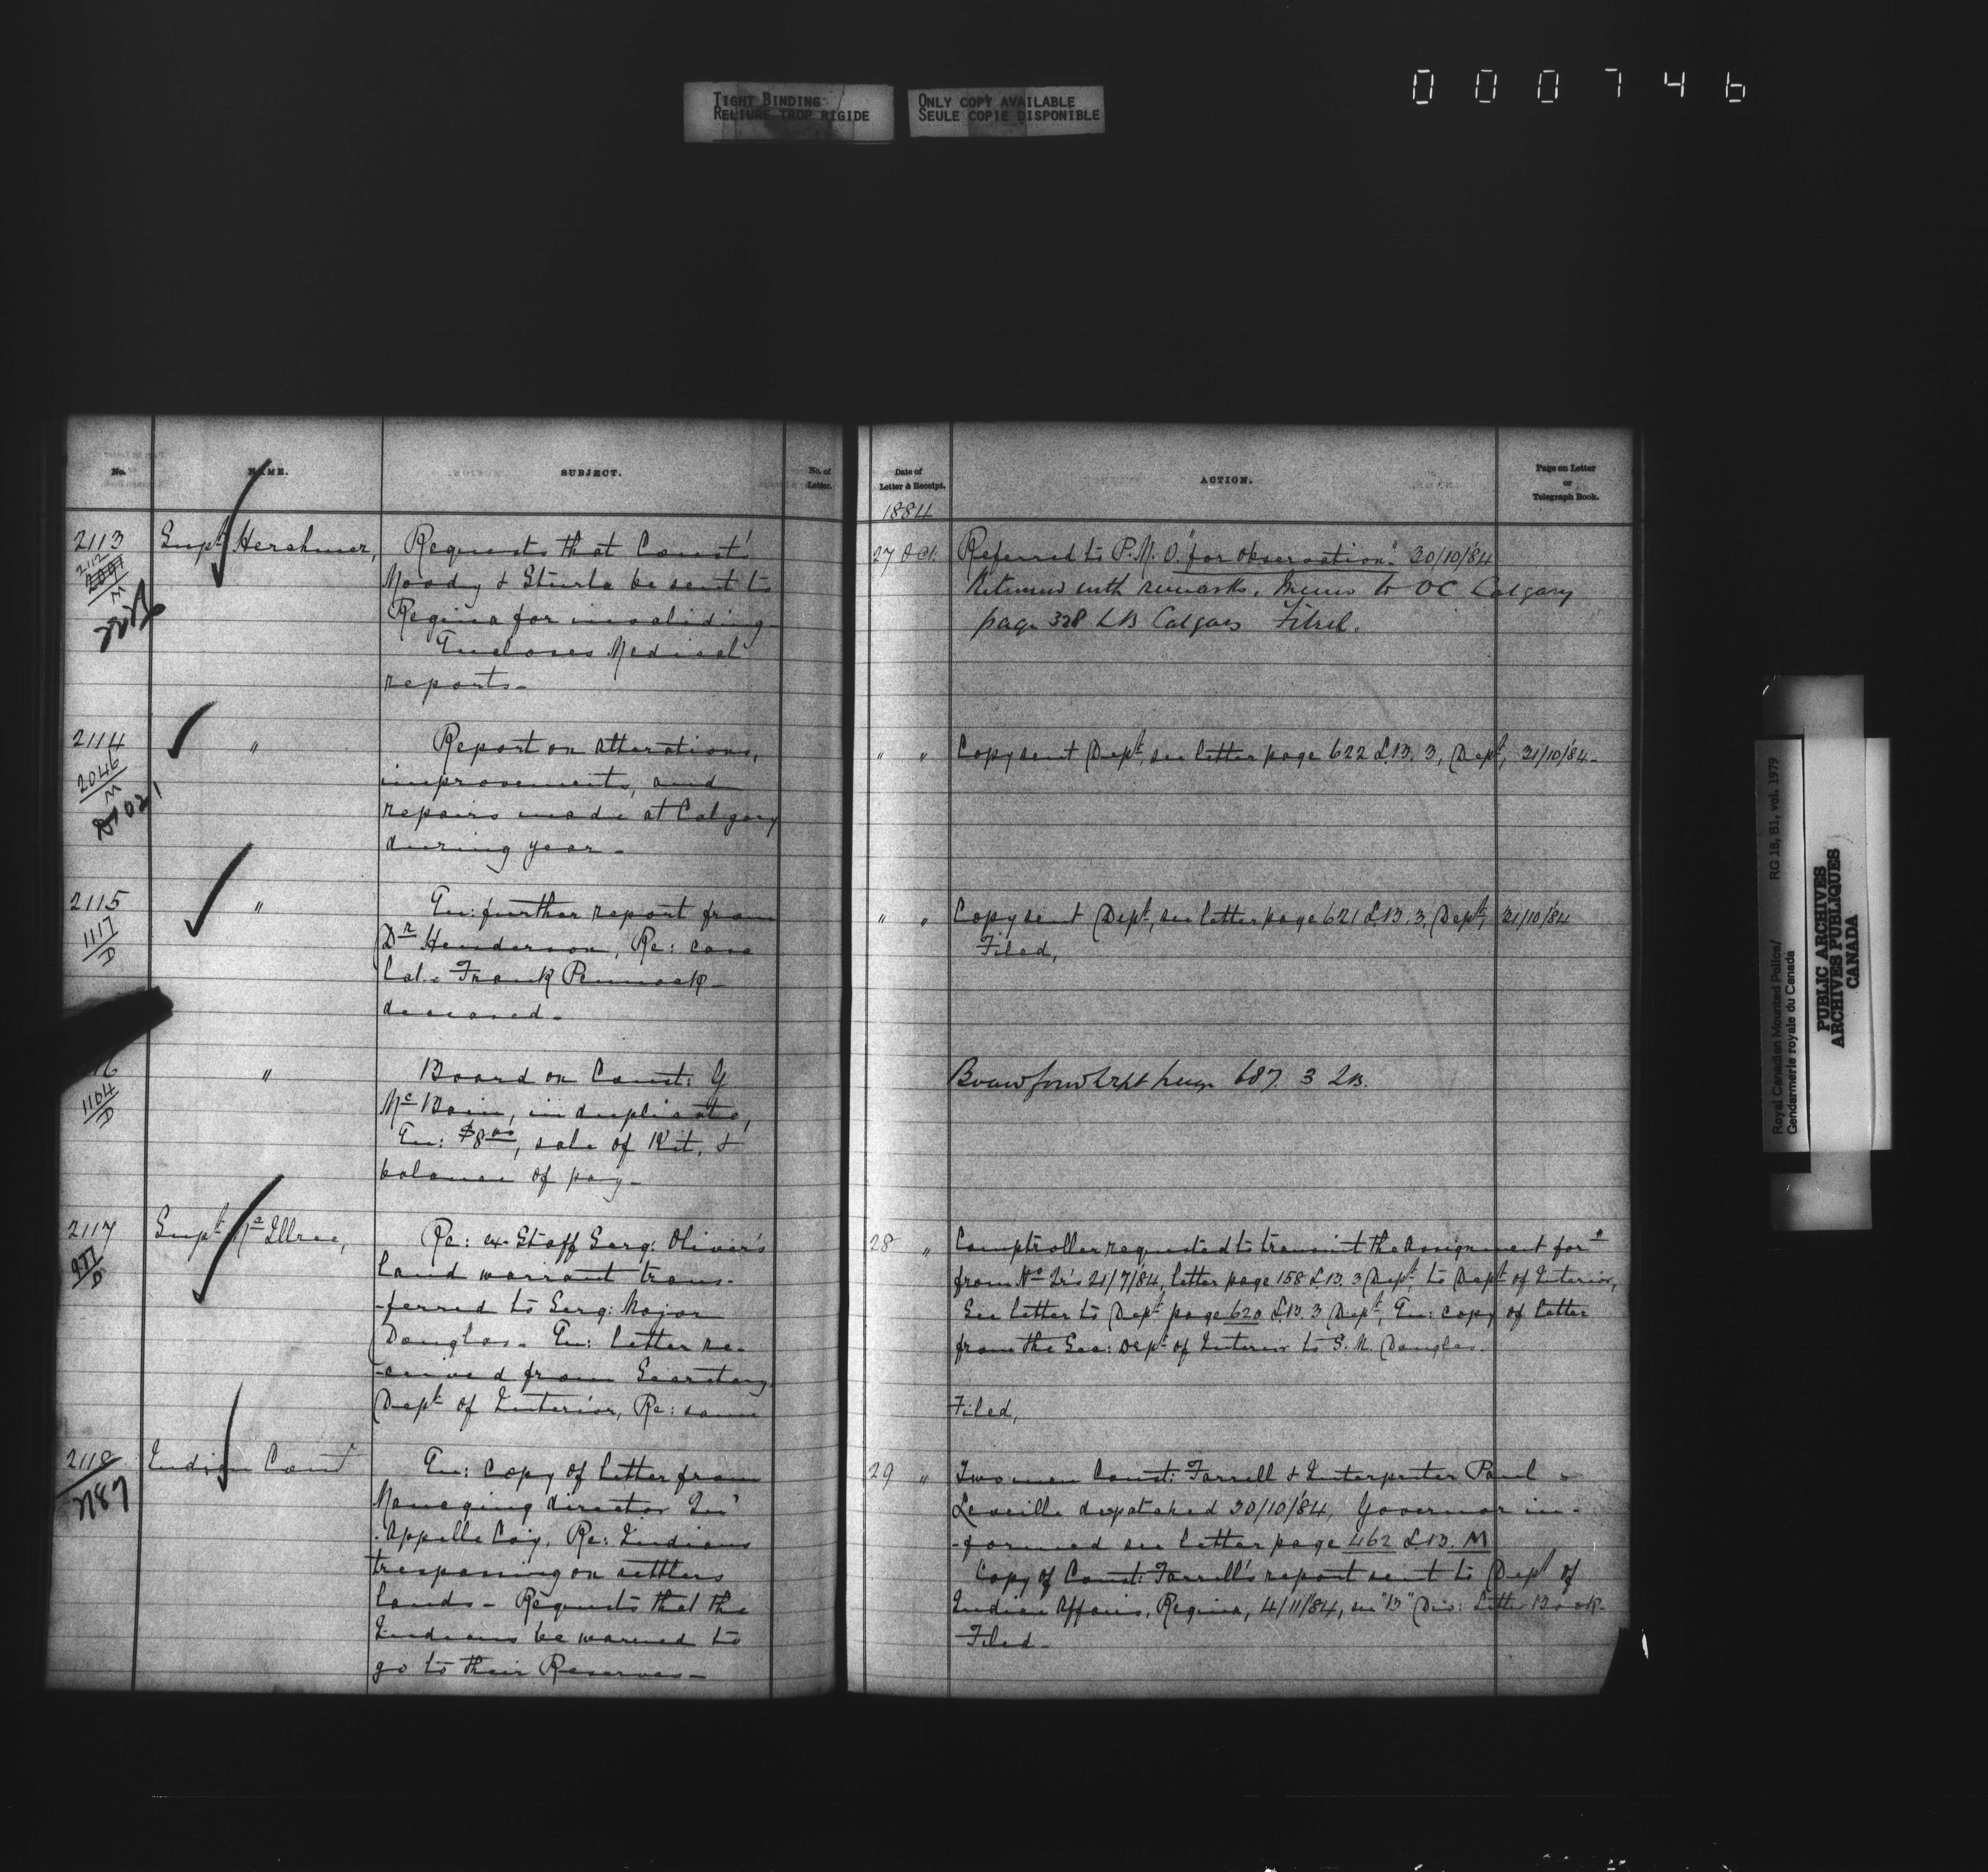 TIGHT BINDING
RELIURE TROP RIGIDE
ONLY COPY AVAILABLE
SEULE COPIE DISPONIBLE
000746
No.
NAME.
SUBJECT.
No. of
Letter.
Date of
Letter & Receipt.
ACTION.
Page on Letter
or
Telegraph Book.
1884
2113
2112
2091
M
Supt Herchmer,
Requests that Const's
Moody & Sturla be sent to
Regina for invaliding
Encloses Medical
reports-
27 Oct.
Referred to P.M.O. "for observation". 30/10/84
Returned with remarks. Memo to OC Calgary
page 328 LB Calgary Filed.
2114
2046
M
"
Report on alterations,
improvements, and
repairs made at Calgary
during year-
" "
Copy sent Dept, see letter page 622 L.B. 3, Dept, 31/10/84-
2115
1117
D
"
En: further report from
Dr Henderson, Re: case
late Frank Pennock
deceased-
" "
Copy sent Dept, see letter page 621 L.B. 3, Dept, 31/10/84
Filed,
16
1164
D
"
Board on Const: G
Mc Bain, in duplicate,
En: $8 00, sale of Kit, &
balance of pay-
687. 3 LB.
2117
977
D
Supt McIllree,
Re: ex-Staff Serg: Oliver's
land warrant trans-
-ferred to Serg: Major
Douglas- En: letter re-
-ceived from Secretary
Dept of Interior, Re: same
28 "
Comptroller requested to transmit the assignment for"
from Hd Qr's 21/7/84, letter page 158 L.B. 3 Dept, to Dept of Interior,
See letter to Dept page 620 L.B. 3 Dept, En: copy of letter
from the Sec: Dept of Interior to S.M. Douglas.
Filed,
2118
2187
Indian Comr
En: copy of letter from
Managing director Qu'
-Appelle Coy, Re: Indians
trespassing on settlers
lands- Requests that the
Indians be warned to
go to their Reserves-
29 "
Two men Const: Farrell & Interpreter Paul
Leveille despatched 30/10/84, Governor in-
-formed see letter page 462 L.B. M
Copy of Const: Farrell's report sent to Dept of
Indian Affairs, Regina, 4/11/84, in "B" Div: Letter Book-
Filed-
Royal Canadian Mounted Police/ RG 18, B1, vol. 1979
Gendarmerie royale du Canada
PUBLIC ARCHIVES
ARCHIVES PUBLIQUES
CANADA